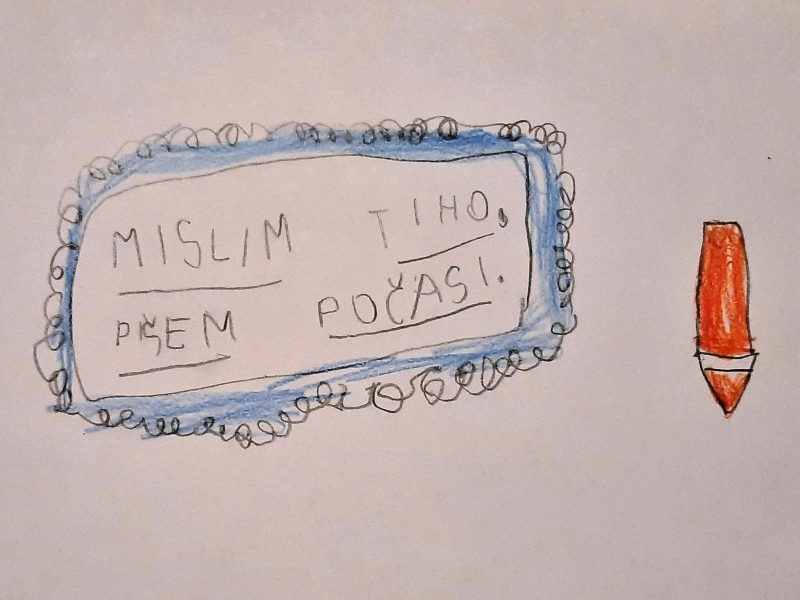 MISLIM TIHO,
PIŠEM POČASI.